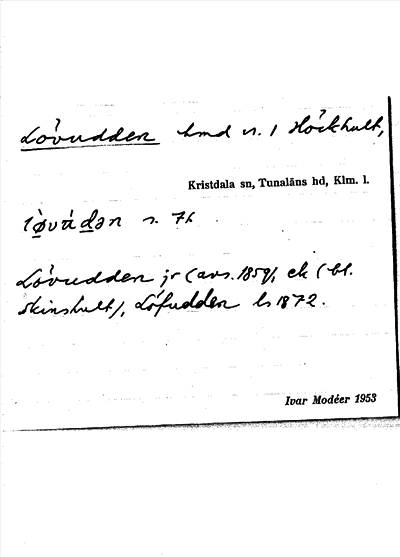 Lövudden hmd n. 1 Höckhult,
Kristdala sn, Tunaläns hd, Klm. l.
lø̀vàdən n. 7h
Lövudden jr (avs. 1859), ek (bl.
Skinshult), Löfudden ls 1872.
Ivar Modéer 1953